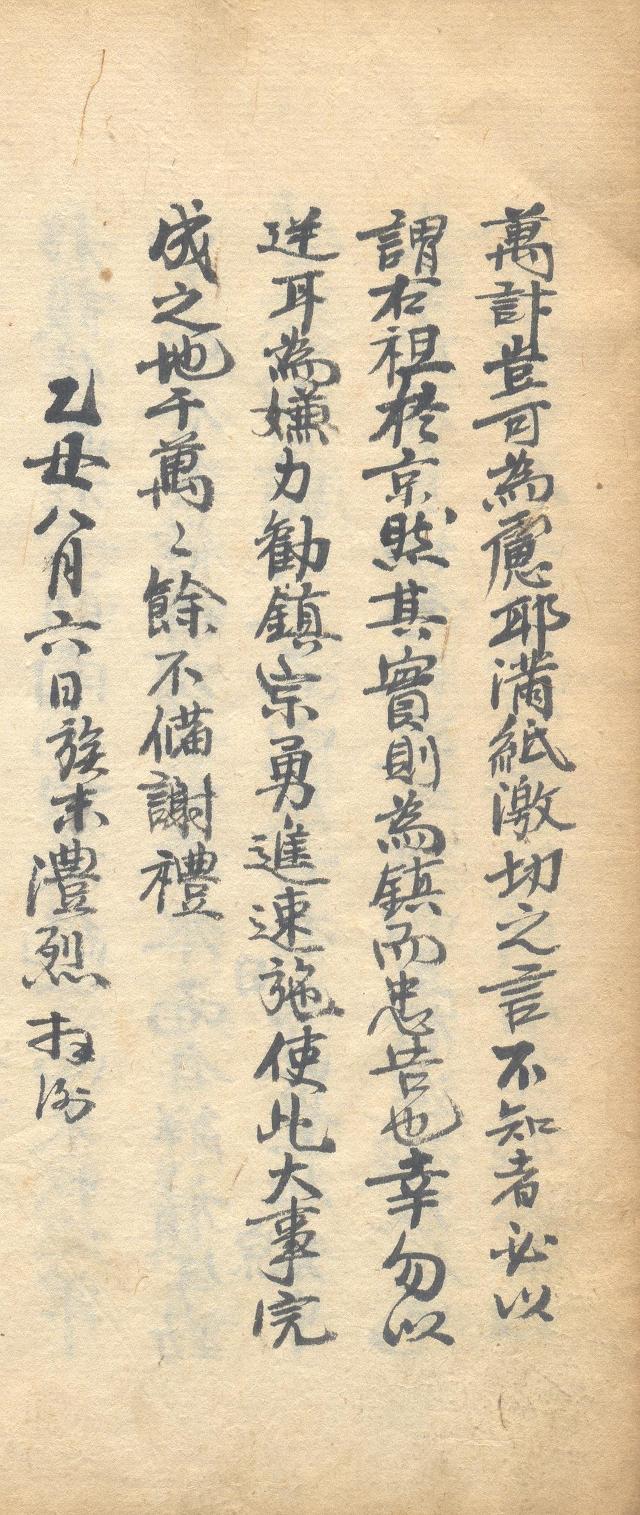 萬計豈可為慮耶滿紙激切之言不知者必以
謂右祖於京然其實則為鎮而忠告也幸勿以
逆耳為嫌力勸鎮宗勇進速施使此大事完
成之地千萬〻餘不備謝禮
乙丑八月六日族末澧烈拜謝